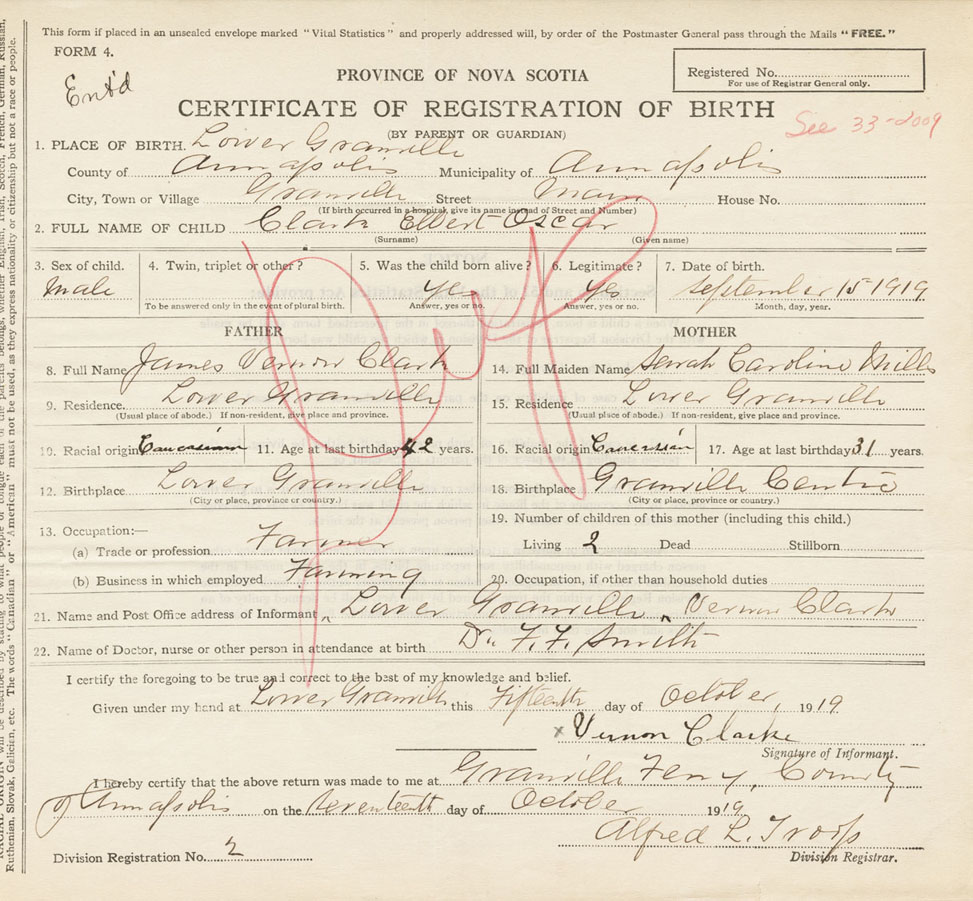 This form if placed in an unsealed envelope marked "Vital Statistics" and properly addressed will, by order of the Postmaster General pass through the Mails "FREE."
FORM 4.
Ent'd
PROVINCE OF NOVA SCOTIA
Registered No.
For use of Registrar General only.
CERTIFICATE OF REGISTRATION OF BIRTH
See 33-2009
(BY PARENT OR GUARDIAN)
1. PLACE OF BIRTH. Lower Granville
County of Annapolis Municipality of Annapolis
City, Town or Village Granville Street Main House No.
(If birth occurred in a hospital, give its name instead of Street and Number)
2. FULL NAME OF CHILD Clark Elbert Oscar
(Surname) (Given name)
3. Sex of child. 4. Twin, triplet or other? 5. Was the child born alive? 6. Legitimate? 7. Date of birth.
Male yes yes September 15 1919
To be answered only in the event of plural birth. Answer, yes or no. Answer, yes or no. Month, day, year.
FATHER MOTHER
8. Full Name James Vernon Clark 14. Full Maiden Name Sarah Caroline Mills
9. Residence. Lower Granville 15. Residence Lower Granville
(Usual place of abode.) If non-resident, give place and province. (Usual place of abode.) If non-resident, give place and province.
10. Racial origin Caucasian 11. Age at last birthday 42 years. 16. Racial origin Caucasian 17. Age at last birthday 31 years.
12. Birthplace Lower Granville 18. Birthplace Granville Centre
(City or place, province or country.) (City or place, province or country.)
13. Occupation:— 19. Number of children of this mother (including this child.)
(a) Trade or profession Farmer Living 2 Dead Stillborn
(b) Business in which employed Farming 20. Occupation, if other than household duties
21. Name and Post Office address of Informant Lower Granville Vernon Clark
22. Name of Doctor, nurse or other person in attendance at birth Dr. F. F. Smith
I certify the foregoing to be true and correct to the best of my knowledge and belief.
Given under my hand at Lower Granville this Fifteenth day of October, 1919
x Vernon Clarke
Signature of Informant.
I hereby certify that the above return was made to me at Granville Ferry, County
of Annapolis on the seventeenth day of October 1919
Alfred L. Troop
Division Registration No. 2 Division Registrar.